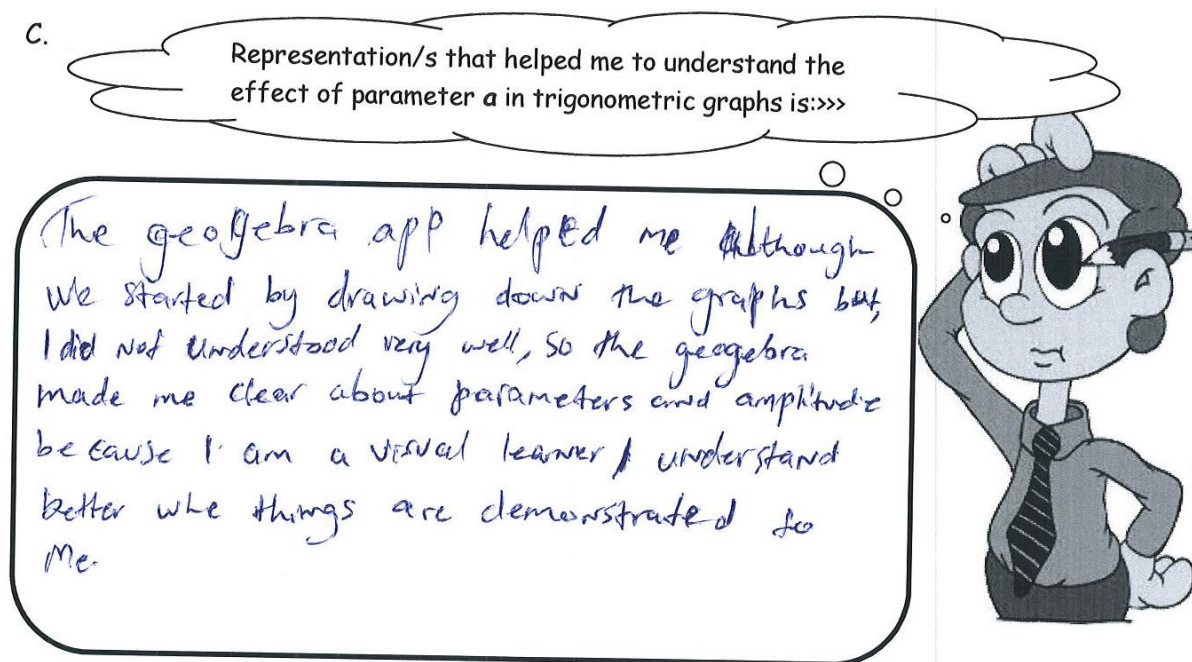 C.
Representation/s that helped me to understand the
effect of parameter a in trigonometric graphs is:>>>
The geogebra app helped me Although
we started by drawing down the graphs but,
I did not understood very well, so the geogebra
made me clear about parameters and amplitude
because I am a visual learner I understand
better whe things are demonstrated to
Me.